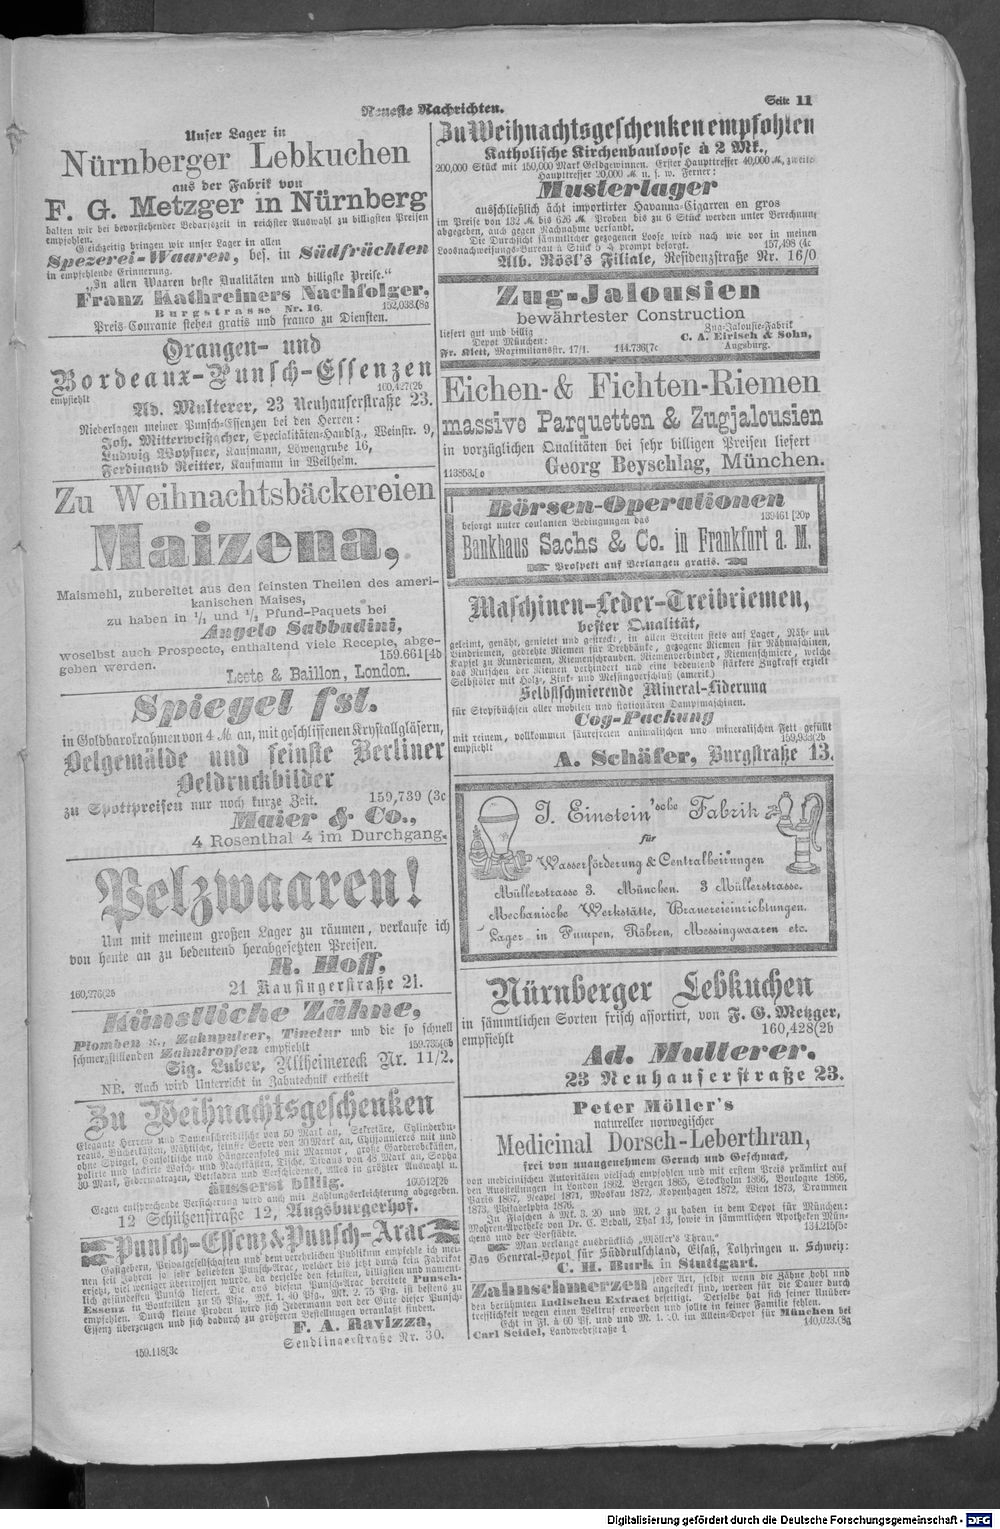 Neueste Nachrichten.
Seite 11
Unser Lager in
Nürnberger Lebkuchen
aus der Fabrik von
F. G. Metzger in Nürnberg
halten wir bei bevorstehender Bedarfszeit in reichster Auswahl zu billigsten Preisen
empfohlen.
Gleichzeitig bringen wir unser Lager in allen
Spezerei-Waaren, bes. in Südfrüchten
in empfehlende Erinnerung.
„In allen Waaren beste Qualitäten und billigste Preise.“
Franz Kathreiners Nachfolger.
Burgstrasse Nr. 16. 152,038.(8g
Preis-Courante stehen gratis und franco zu Diensten.
Orangen- und
Bordeaux-Punsch-Essenzen
empfiehlt 160,427(2b
Ad. Multerer, 23 Neuhauserstraße 23.
Niederlagen meiner Punsch-Essenzen bei den Herren:
Joh. Mitterweißacher, Specialitäten-Handlg., Weinstr. 9,
Ludwig Wopfner, Kaufmann, Löwengrube 16,
Ferdinand Reitter, Kaufmann in Weilheim.
Zu Weihnachtsbäckereien
Maizena,
Maismehl, zubereitet aus den feinsten Theilen des ameri-
kanischen Maises,
zu haben in 1/1 und 1/2 Pfund-Paquets bei
Angelo Sabbadini,
woselbst auch Prospecte, enthaltend viele Recepte, abge-
geben werden. 159.661[4b
Leete & Baillon, London.
Spiegel fst.
in Goldbarokrahmen von 4 M. an, mit geschliffenen Krystallgläsern,
Oelgemälde und feinste Berliner
Oeldruckbilder
zu Spottpreisen nur noch kurze Zeit. 159,739 (3c
Maier & Co.,
4 Rosenthal 4 im Durchgang.
Pelzwaaren!
Um mit meinem großen Lager zu räumen, verkaufe ich
von heute an zu bedeutend herabgesetzten Preisen.
R. Hoff,
160,276(2b 21 Kaufingerstraße 21.
Künstliche Zähne,
Plomben ꝛc., Zahnpulver, Tinctur und die so schnell
schmerzstillenden Zahntropfen empfiehlt 159.735(6b
Sig. Luber, Altheimereck Nr. 11/2.
NB. Auch wird Unterricht in Zahntechnik ertheilt
Zu Weihnachtsgeschenken
Elegante Herren- und Damenschreibtische von 50 Mark an, Sekretäre, Cylinderbu-
reaus, Bücherkästen, Nähtische, feinster Sorte von 20 Mark an, Chiffonnieres mit und
ohne Spiegel, Consoltische und Hängeconsoles mit Marmor, große Garderobekästen,
polirte und lackirte Wasch- und Nachtkästen, Tische, Divans von 48 Mark an, Sopha
30 Mark, Federmatrazen, Bettladen und Verschiedenes, Alles in größter Auswahl u.
äusserst billig. 160512[2b
Gegen entsprechende Versicherung wird auch mit Zahlungserleichterung abgegeben.
12 Schützenstraße 12, Augsburgerhof.
Punsch-Essenz & Punsch-Arac
Gastgebern, Privatgesellschaften und dem verehrlichen Publikum empfehle ich mei-
nen seit Jahren so sehr beliebten Punsch-Arac, welcher bis jetzt durch kein Fabrikat
ersetzt, viel weniger übertroffen wurde, da derselbe den feinsten, billigsten und nament-
lich gesündesten Punsch liefert. Die aus diesem Punsch-Arac bereitete Punsch-
Essenz in Bouteillen zu 95 Pfg., Mk. 1. 40 Pfg., Mk. 2. 75 Pfg. ist bestens zu
empfehlen. Durch kleine Proben wird sich Jedermann von der Güte dieser Punsch-
Essenz überzeugen und sich dadurch zu größeren Bestellungen veranlaßt finden.
F. A. Ravizza,
159.118[3c Sendlingerstraße Nr. 30.
Zu Weihnachtsgeschenken empfohlen
Katholische Kirchenbauloose à 2 Mk.,
200,000 Stück mit 150,000 Mark Geldgewinnen. Erster Haupttreffer 40,000 M., zweiter
Haupttreffer 20,000 M. u. s. w. Ferner:
Musterlager
ausschließlich ächt importirter Havanna-Cigarren en gros
im Preise von 132 M. bis 626 M. Proben bis zu 6 Stück werden unter Berechnung
abgegeben, auch gegen Nachnahme versandt.
Die Durchsicht sämmtlicher gezogenen Loose wird nach wie vor in meinem
Loosnachweisungs-Bureau à Stück 5 ₰ prompt besorgt. 157,498 (4c
Alb. Rösl's Filiale, Residenzstraße Nr. 16/0
Zug-Jalousien
bewährtester Construction
liefert gut und billig Zug-Jalousie-Fabrik
Depot München: C. A. Eirisch & Sohn,
Fr. Klett, Maximiliansstr. 17/1. 144.736[7c Augsburg.
Eichen- & Fichten-Riemen
massive Parquetten & Zugjalousien
in vorzüglichen Qualitäten bei sehr billigen Preisen liefert
113853.[o Georg Beyschlag, München.
Börsen-Operationen
besorgt unter coulanten Bedingungen das 139461 [20p
Bankhaus Sachs & Co. in Frankfurt a. M.
Prospekt auf Verlangen gratis.
Maschinen-Leder-Treibriemen,
bester Qualität,
geleimt, genäht, genietet und gestreckt, in allen Breiten stets auf Lager, Näh- und
Bindriemen, gedrehte Riemen für Drehbänke, gezogene Riemen für Nähmaschinen,
Kapsel zu Rundriemen, Riemenschrauben, Riemenverbinder, Riemenschmiere, welche
das Rutschen der Riemen verhindert und eine bedeutend stärkere Zugkraft erzielt
Selbstöler mit Holz-, Zink- und Messingverschluß (amerik.)
Selbstschmierende Mineral-Liderung
für Stopfbüchsen aller mobilen und stationären Dampfmaschinen.
Cog-Packung
mit reinem, vollkommen säurefreien animalischen und mineralischen Fett gefüllt
empfiehlt 159,933(2b
A. Schäfer, Burgstraße 13.
J. Einstein'sche Fabrik
für
Wasserförderung & Centralheizungen
Müllerstrasse 3. München. 3 Müllerstrasse.
Mechanische Werkstätte, Brauereieinrichtungen.
Lager in Pumpen, Röhren, Messingwaaren etc.
Nürnberger Lebkuchen
in sämmtlichen Sorten frisch assortirt, von F. G. Metzger,
empfiehlt 160,428(2b
Ad. Multerer.
23 Neuhauserstraße 23.
Peter Möller's
natureller norwegischer
Medicinal Dorsch-Leberthran,
frei von unangenehmem Geruch und Geschmack,
von medicinischen Autoritäten vielfach empfohlen und mit erstem Preis prämiirt auf
den Ausstellungen in London 1862, Bergen 1865, Stockholm 1866, Boulogne 1866,
Paris 1867, Neapel 1871, Moskau 1872, Kopenhagen 1872, Wien 1873, Drammen
1873, Philadelphia 1876.
In Flaschen à Mk. 3. 20 und Mk. 2 zu haben in dem Depot für München:
Mohren-Apotheke von Dr. C. Bedall, Thal 13, sowie in sämmtlichen Apotheken Mün-
chens und der Vorstädte. 134,215(5c
Man verlange ausdrücklich „Möller's Thran.“
Das General-Depot für Süddeutschland, Elsaß, Lothringen u. Schweiz:
C. H. Burk in Stuttgart.
Zahnschmerzen jeder Art, selbst wenn die Zähne hohl und
angesteckt sind, werden für die Dauer durch
den berühmten Indischen Extract beseitigt. Derselbe hat sich seiner Unüber-
trefflichkeit wegen einen Weltruf erworben und sollte in keiner Familie fehlen.
Echt in Fl. à 60 Pf. und und M. 1. 20. im Allein-Depot für München bei
Carl Seidel, Landwehrstraße 1 140,023.(8g
Digitalisierung gefördert durch die Deutsche Forschungsgemeinschaft - DFG